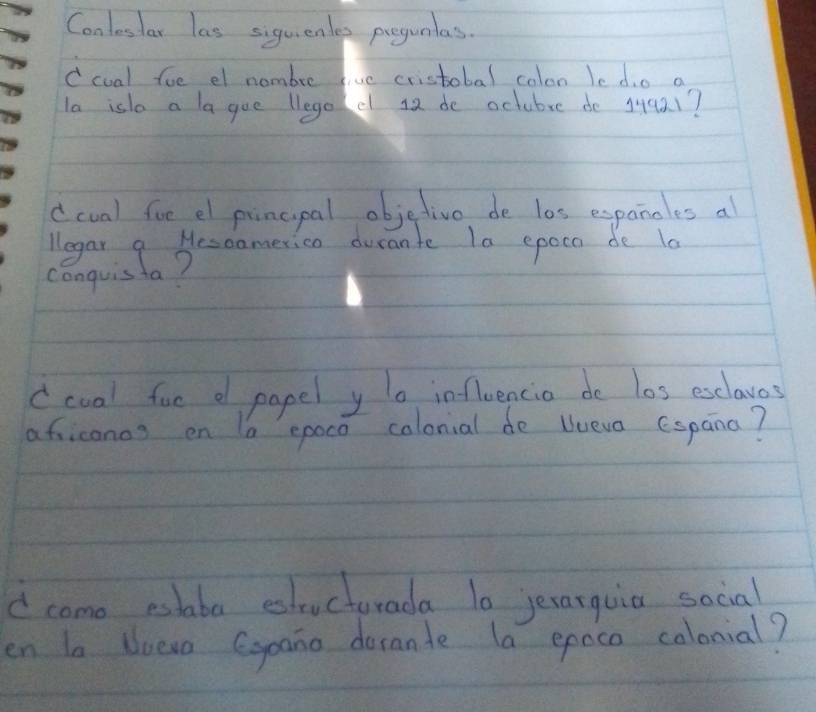 Contestar las siguientes preguntas.
¿cual fue el nombre que cristobal colon le dio a
la isla a la que llego el 12 de octubre de 1492?
¿cual fue el principal objetivo de los españoles al
llegar a Mesoamerica durante la epoca de la
conquista?
¿cual fue el papel y la influencia de los esclavos
africanos en la epoca colonial de Nueva España?
¿como estaba estructurada la jerarquia social
en la Nueva España durante la epoca colonial?